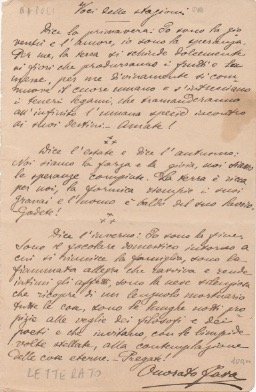 Voci delle stagioni
Dice la primavera: Io sono la gio
ventù e l'amore, io sono la speranza.
Per me, la terra si schiude dolcemente
ai fiori che produrranno i frutti e la
messe, per me divinamente si com
muove il cuore umano e s'intrecciano
i teneri legami, che tramanderanno
all'infinito l'umana specie incontro
ai suoi destini. — Amate!
Dice l'estate e dice l'autunno:
Noi siamo la forza e la gioia, noi siamo
le speranze compiute. La terra è ricca
per noi, la formica riempie i suoi
granai e l'uomo è del suo lavoro.
Godete!
Dice l'inverno: Io sono la pace.
Sono il focolare domestico intorno a
cui si riunisce la famiglia, sono la
fiammata allegra che ravviva e rende
intimi gli affetti, sono la neve silenziosa
che ricopre di un lenzuolo mortuario
tutte le cose, sono le lunghe notti pro
pizie alle veglie dei filosofi e dei
poeti e che invitano, con le limpide
volte stellate, alla contemplazione
delle cose eterne. — Pregate!
Onorato Fava
LETTERATO